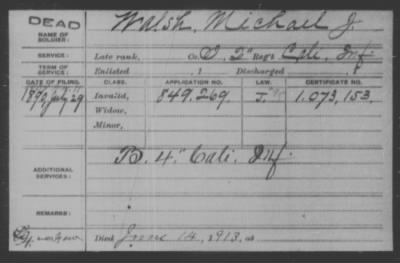 DEAD
NAME OF SOLDIER:
Walsh, Michael J.
SERVICE:
Late rank, Co. D, 2" Reg't Cali. Inf.
TERM OF SERVICE:
Enlisted , 1 Discharged , 1
DATE OF FILING. CLASS. APPLICATION NO. LAW. CERTIFICATE NO.
1890 July 29 Invalid, 849.269. 1.073,153.
Widow,
Minor,
ADDITIONAL SERVICES:
B. 4" Cali. Inf.
REMARKS:
Died June 14, 1913, at